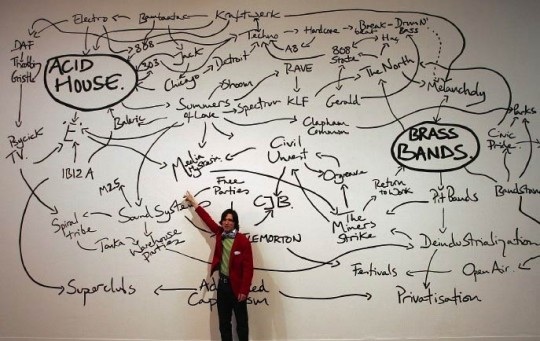 Electro
Kraftwerk
DAF
Throbbing
Gristle
808
303
Jack
Techno
Hardcore
Break-
beat
Drum N'
Bass
ACID
HOUSE.
Chicago
Detroit
A8
808
State
The North
Melancholy
Shoom
RAVE
Summers
of Love
Spectrum
KLF
Gerald
Parks
Balearic
Clapham
Common
BRASS
BANDS.
Civic
Pride
Psychick
TV.
E
Media
Hysteria
Civil
Unrest
Orgreave
IBIZA
M25
Free
Parties
C.J.B.
Return
to Work
Pit Bands
Bandstand
Spiral
tribe
Sound Systems
The
Miners
Strike
Tonka
Warehouse
Parties
Deindustrialization
Festivals
Open Air.
Superclubs
Advanced
Capitalism
Privatisation